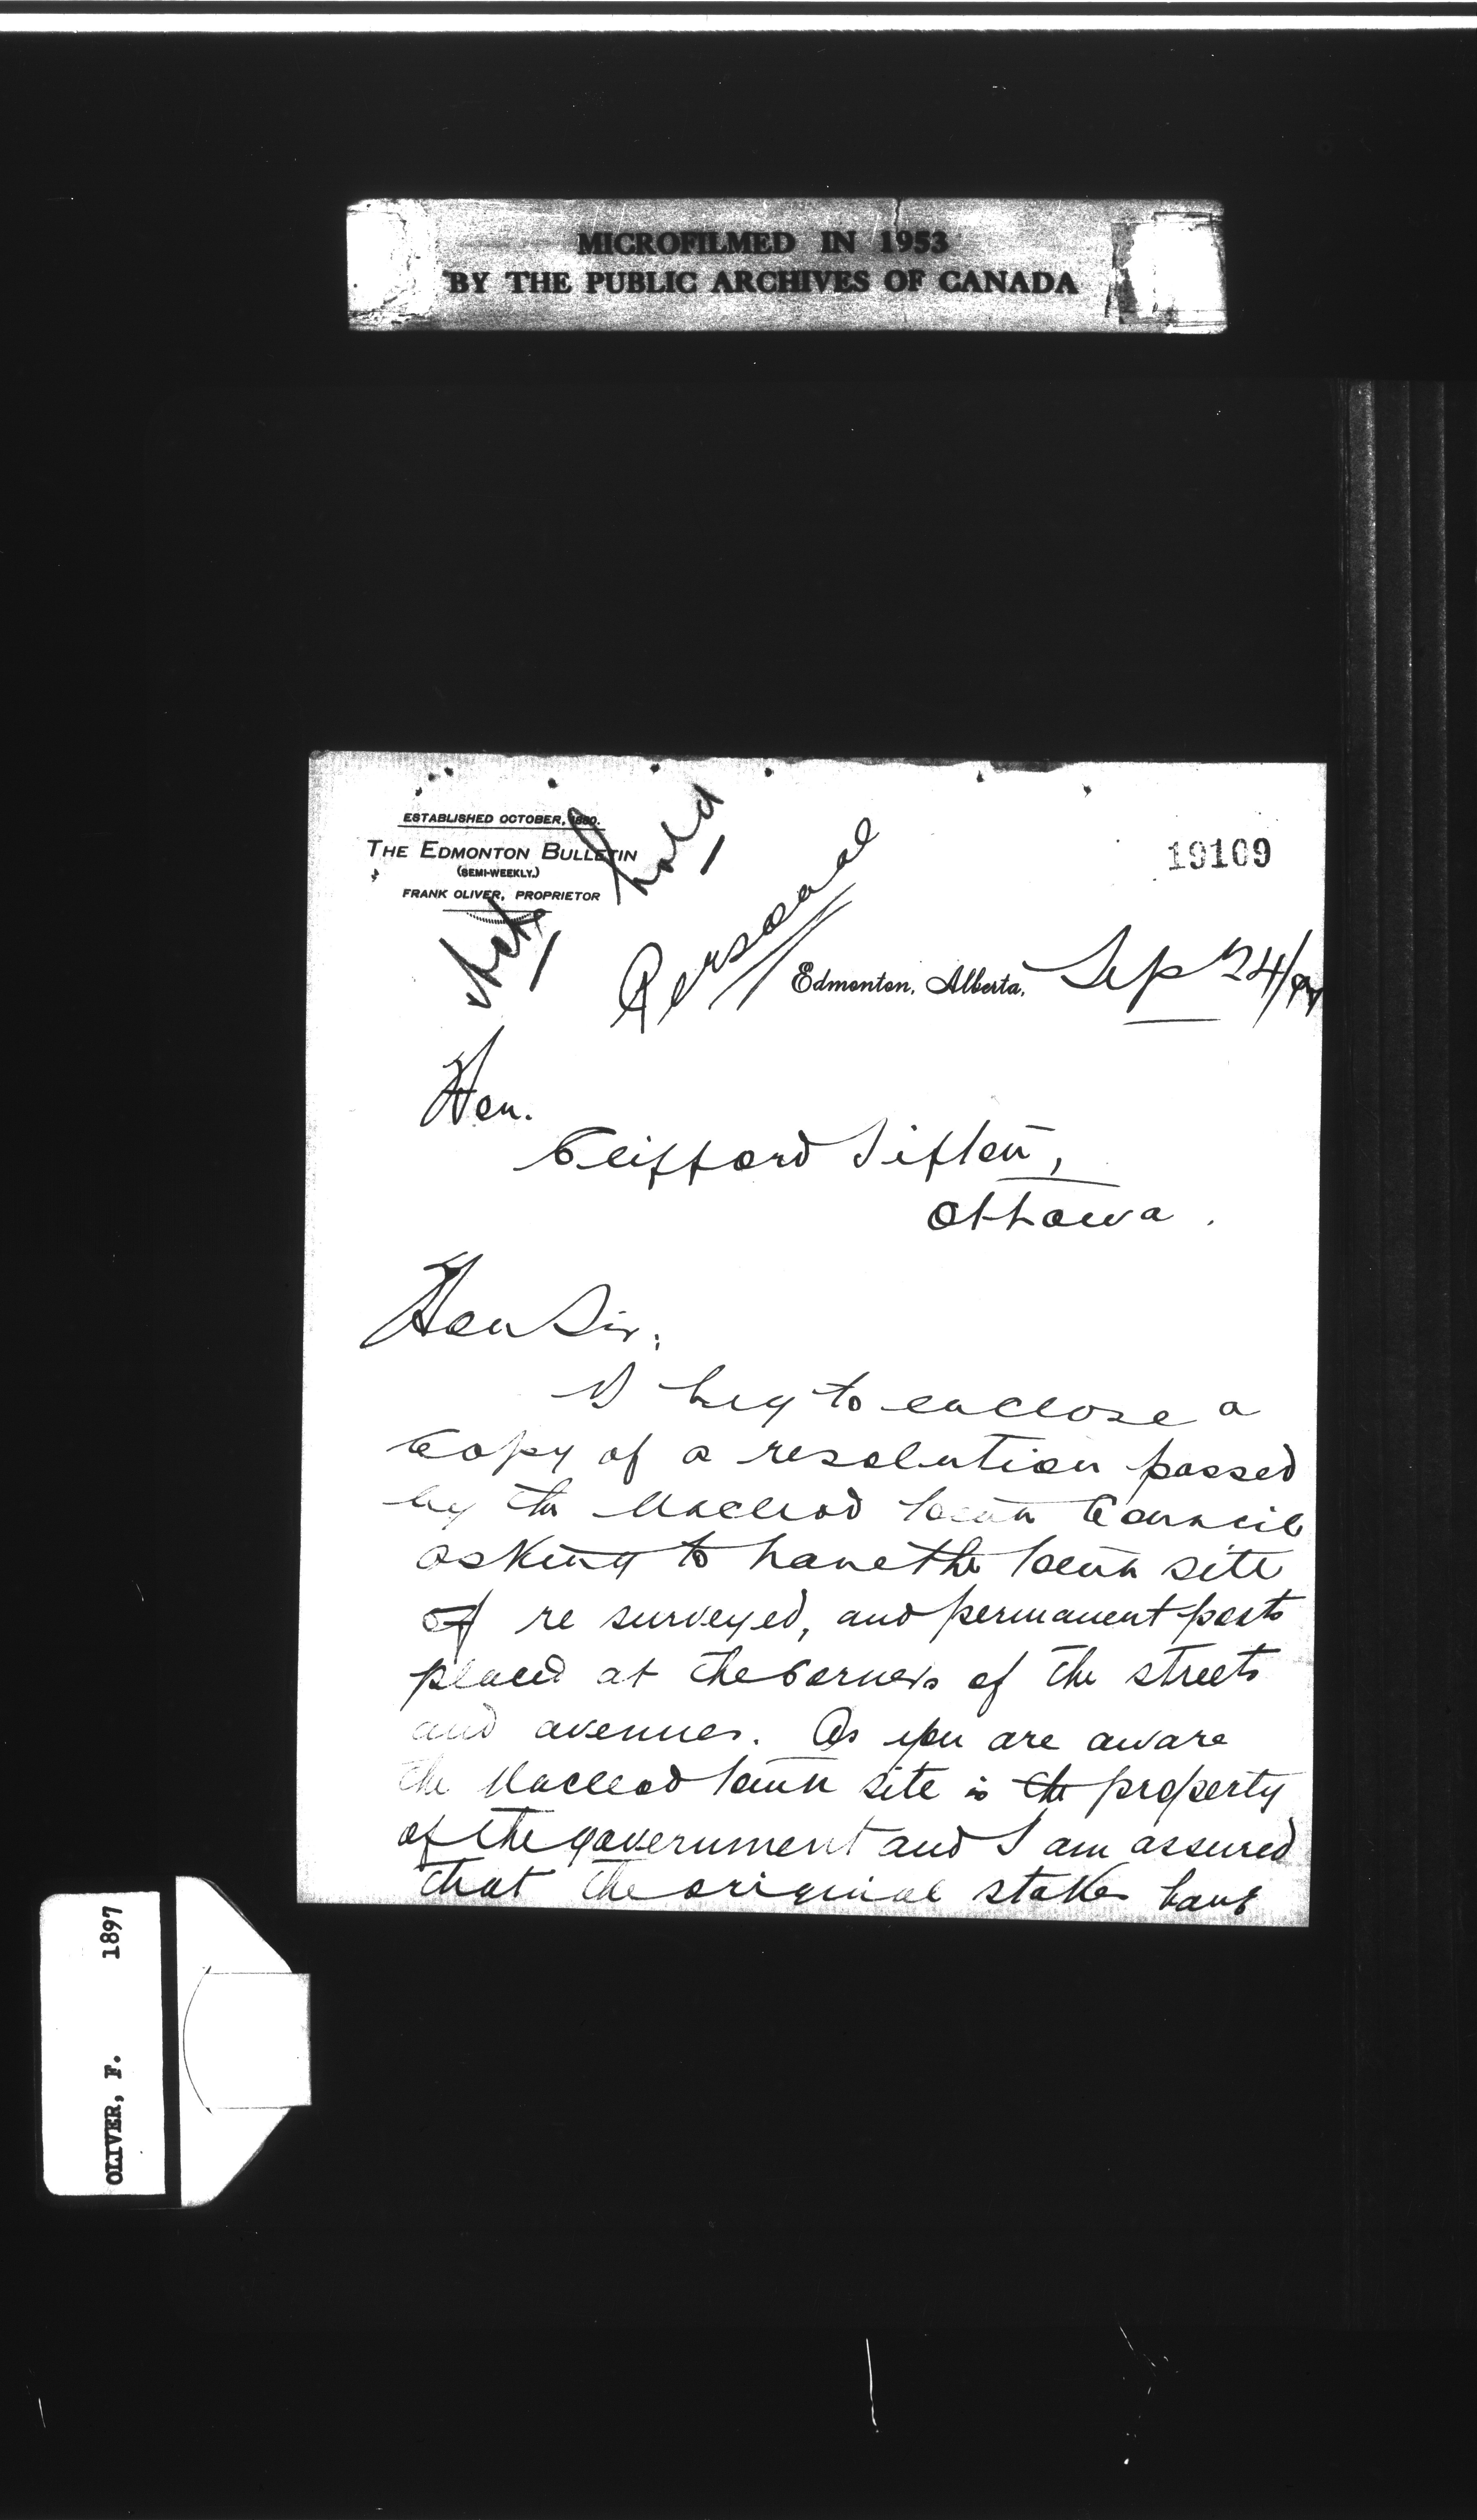 MICROFILMED IN 1953
BY THE PUBLIC ARCHIVES OF CANADA
ESTABLISHED OCTOBER, 1880.
THE EDMONTON BULLETIN
(SEMI-WEEKLY.)
FRANK OLIVER, PROPRIETOR
hold
Personal
19109
Edmonton, Alberta, Sep 24/97
Hon.
Clifford Sifton,
Ottawa.
Hon Sir;
I beg to enclose a
Copy of a resolution passed
by the Macleod town Council
asking to have the town site
of re surveyed, and permanent posts
placed at the Corners of the streets
and avenues. As you are aware
the Macleod town site is the property
of the government and I am assured
that the original stakes have
OLIVER, F. 1897